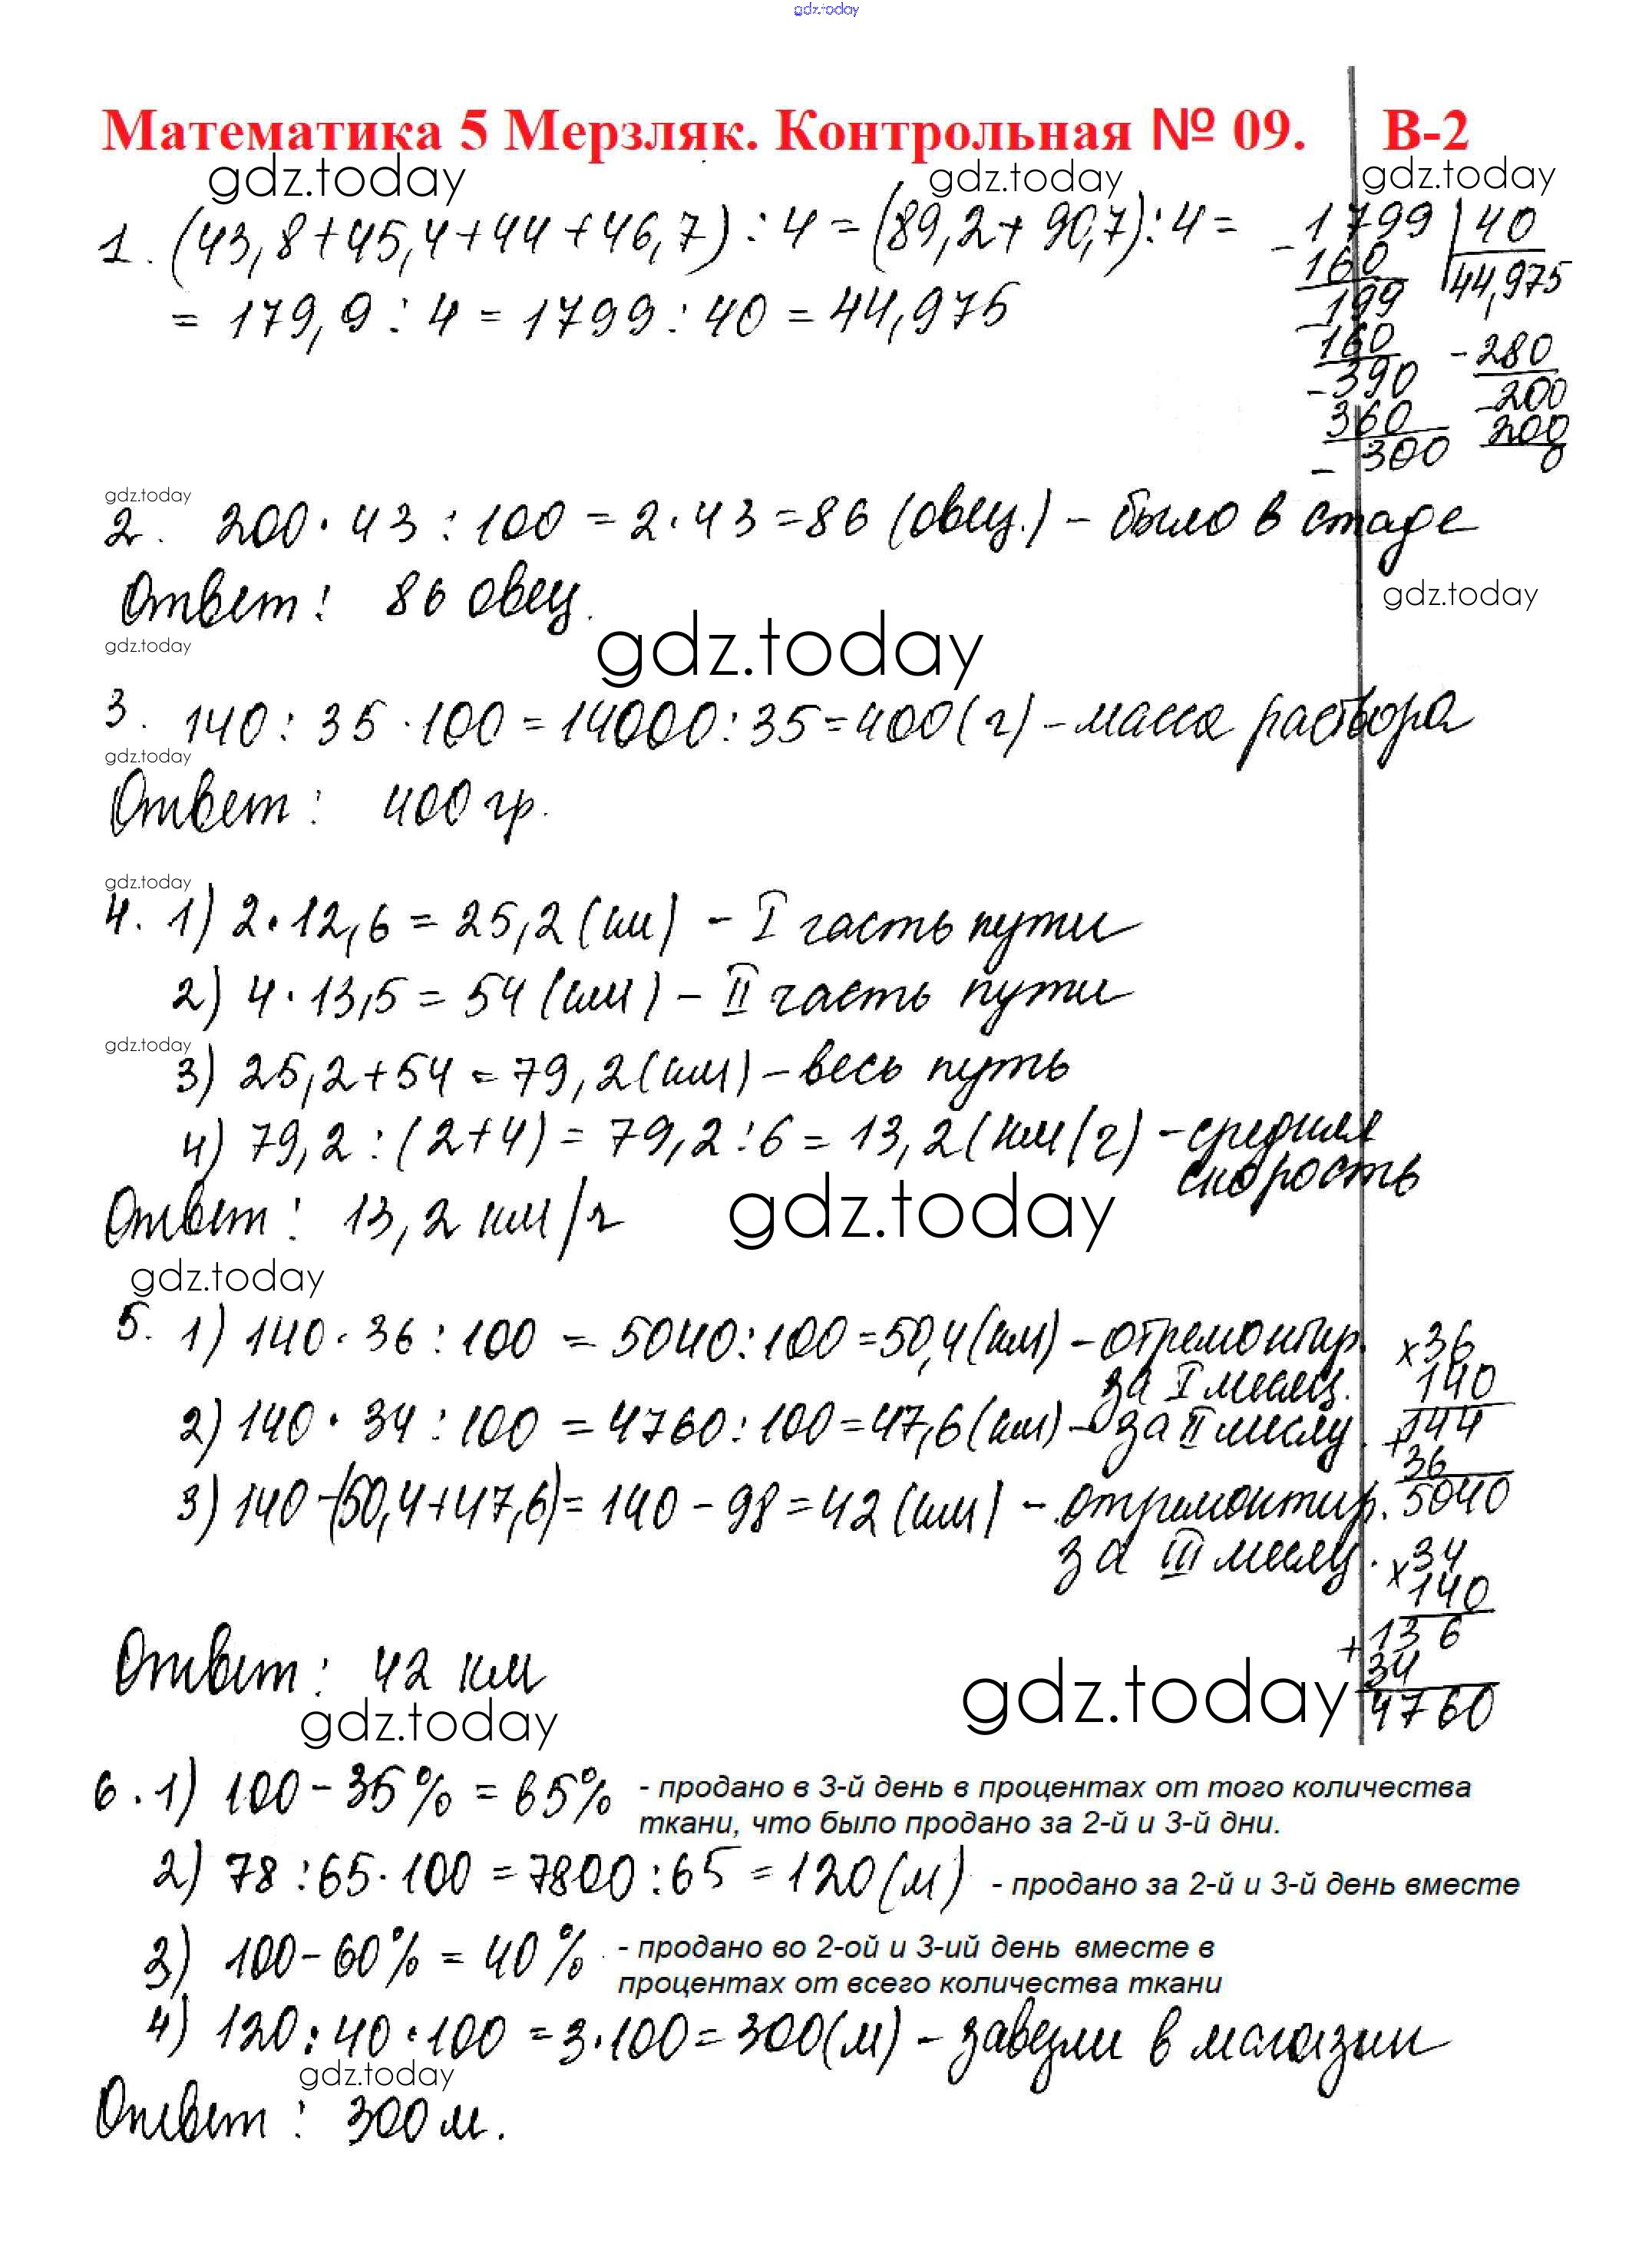 gdz.today
Математика 5 Мерзляк. Контрольная № 09. В-2
gdz.today gdz.today gdz.today
1. (43,8+45,4+44+46,7):4=(89,2+90,7):4=
= 179,9:4=1799:40=44,975
-1799 | 40
160 | 44,975
-199
160
-390
360
-300
-280
-200
200
0
gdz.today
2. 200·43:100=2·43=86 (овец.) - было в стаде
Ответ: 86 овец.
gdz.today
gdz.today
gdz.today
3. 140:35·100=14000:35=400(г) - масса раствора
gdz.today
Ответ: 400 гр.
gdz.today
4. 1) 2·12,6=25,2(км) - I часть пути
2) 4·13,5=54(км) - II часть пути
gdz.today
3) 25,2+54=79,2(км) - весь путь
4) 79,2:(2+4)=79,2:6=13,2(км/ч) - средняя
скорость
Ответ: 13,2 км/ч
gdz.today
gdz.today
5. 1) 140·36:100=5040:100=50,4(км) - отремонтир.
за I месяц.
2) 140·34:100=4760:100=47,6(км) - за II месяц.
3) 140-(50,4+47,6)=140-98=42(км) - отремонтир.
за III месяц.
x36
140
+144
36
5040
x34
140
+136
34
4760
Ответ: 42 км
gdz.today
gdz.today
6. 1) 100-35%=65% - продано в 3-й день в процентах от того количества
ткани, что было продано за 2-й и 3-й дни.
2) 78:65·100=7800:65=120(м) - продано за 2-й и 3-й день вместе
3) 100-60%=40% - продано во 2-ой и 3-ий день вместе в
процентах от всего количества ткани
4) 120:40·100=3·100=300(м) - завезли в магазин
gdz.today
Ответ: 300 м.